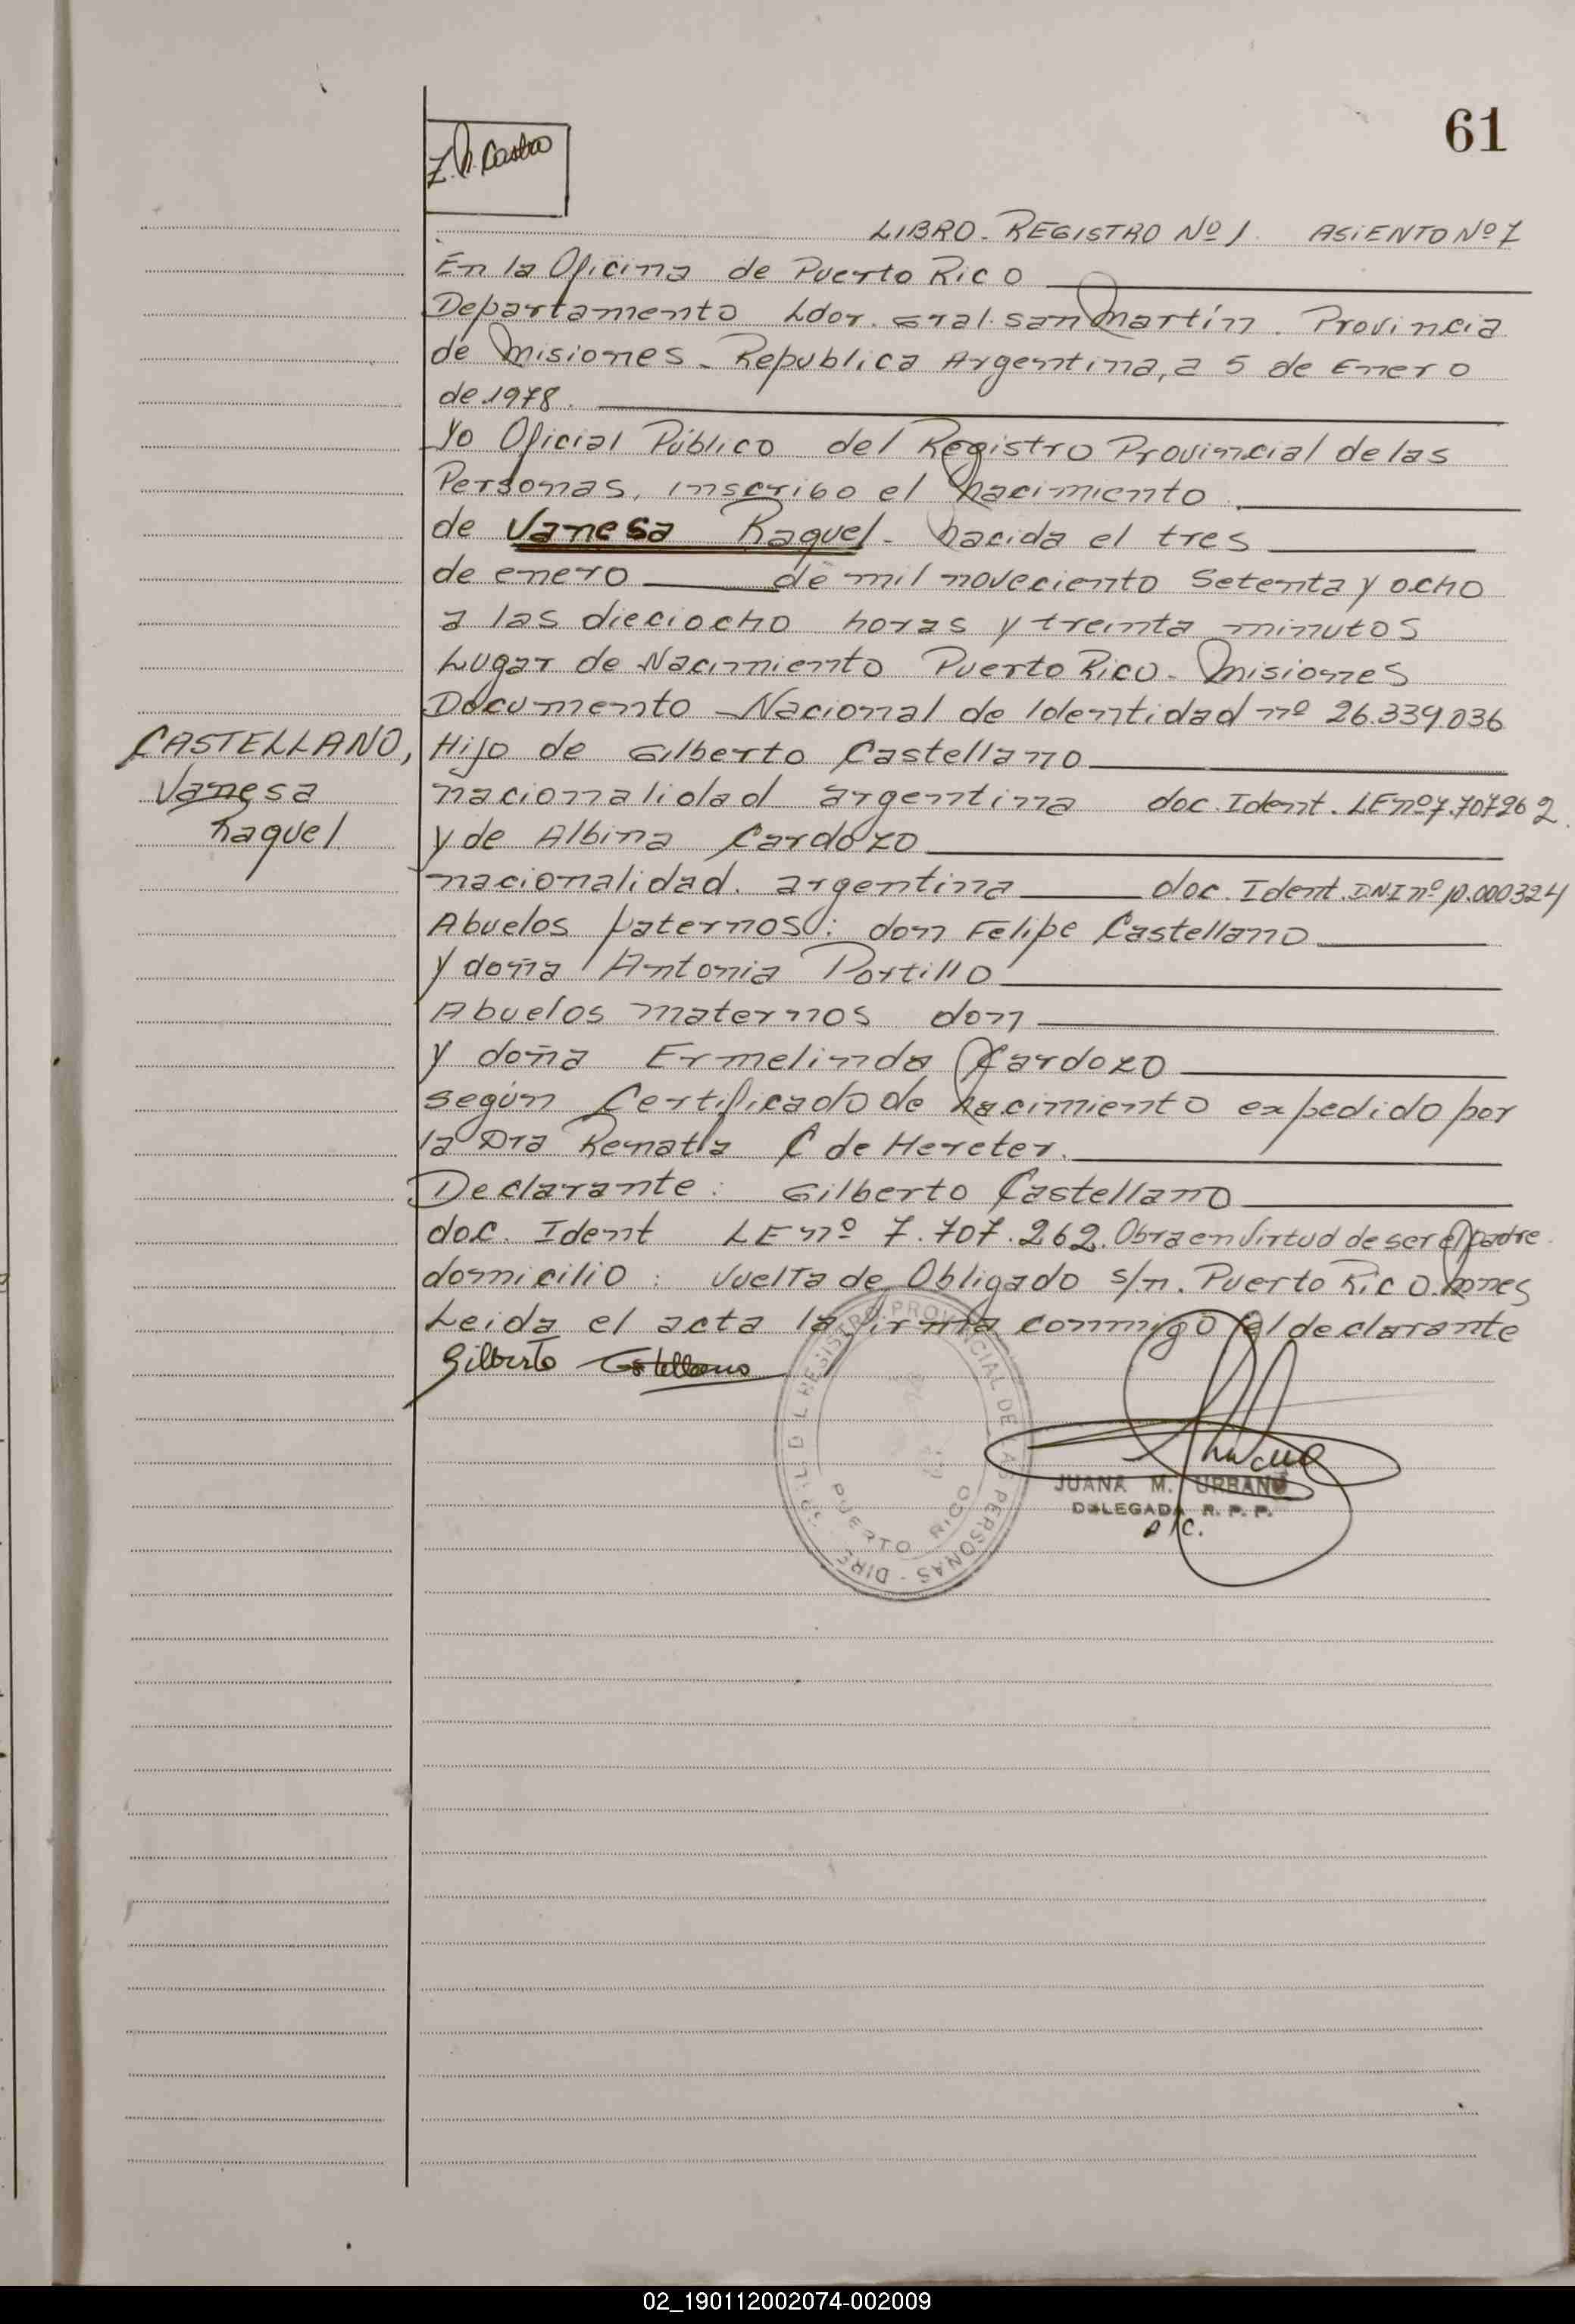 61
Z. R. Castro
LIBRO - REGISTRO Nº 1 ASIENTO Nº 7
En la Oficina de Puerto Rico
Departamento Ldor. Gral. San Martín. Provincia
de Misiones - Republica Argentina, a 5 de Enero
de 1978.
Yo Oficial Público del Registro Provincial de las
Personas, inscribo el nacimiento
de Vanesa Raquel - nacida el tres
de enero de mil noveciento setenta y ocho
a las dieciocho horas y treinta minutos
Lugar de Nacimiento Puerto Rico - Misiones
Documento Nacional de Identidad nº 26.339.036
CASTELLANO,
Vanesa
Raquel
Hijo de Gilberto Castellano
nacionalidad argentina doc. Ident. LE nº 7.707262
y de Albina Cardozo
nacionalidad. argentina doc. Ident. DNI nº 10.000324
Abuelos paternos: don Felipe Castellano
y doña Antonia Portillo
Abuelos maternos don
y doña Ermelinda Cardozo
según Certificado de nacimiento expedido por
la Dra Renata C de Hereter.
Declarante: Gilberto Castellano
doc. Ident LE nº 7.707.262. Obra en virtud de ser el padre
domicilio: Vuelta de Obligado s/n. Puerto Rico. Mnes
Leida el acta la firma conmigo el declarante
Gilberto Castellano
L REGISTRO PROVINCIAL DE LAS PERSONAS - DIRE
PUERTO RICO
JUANA M. URBANO
DELEGADA R. P. P.
A/C.
02_190112002074-002009